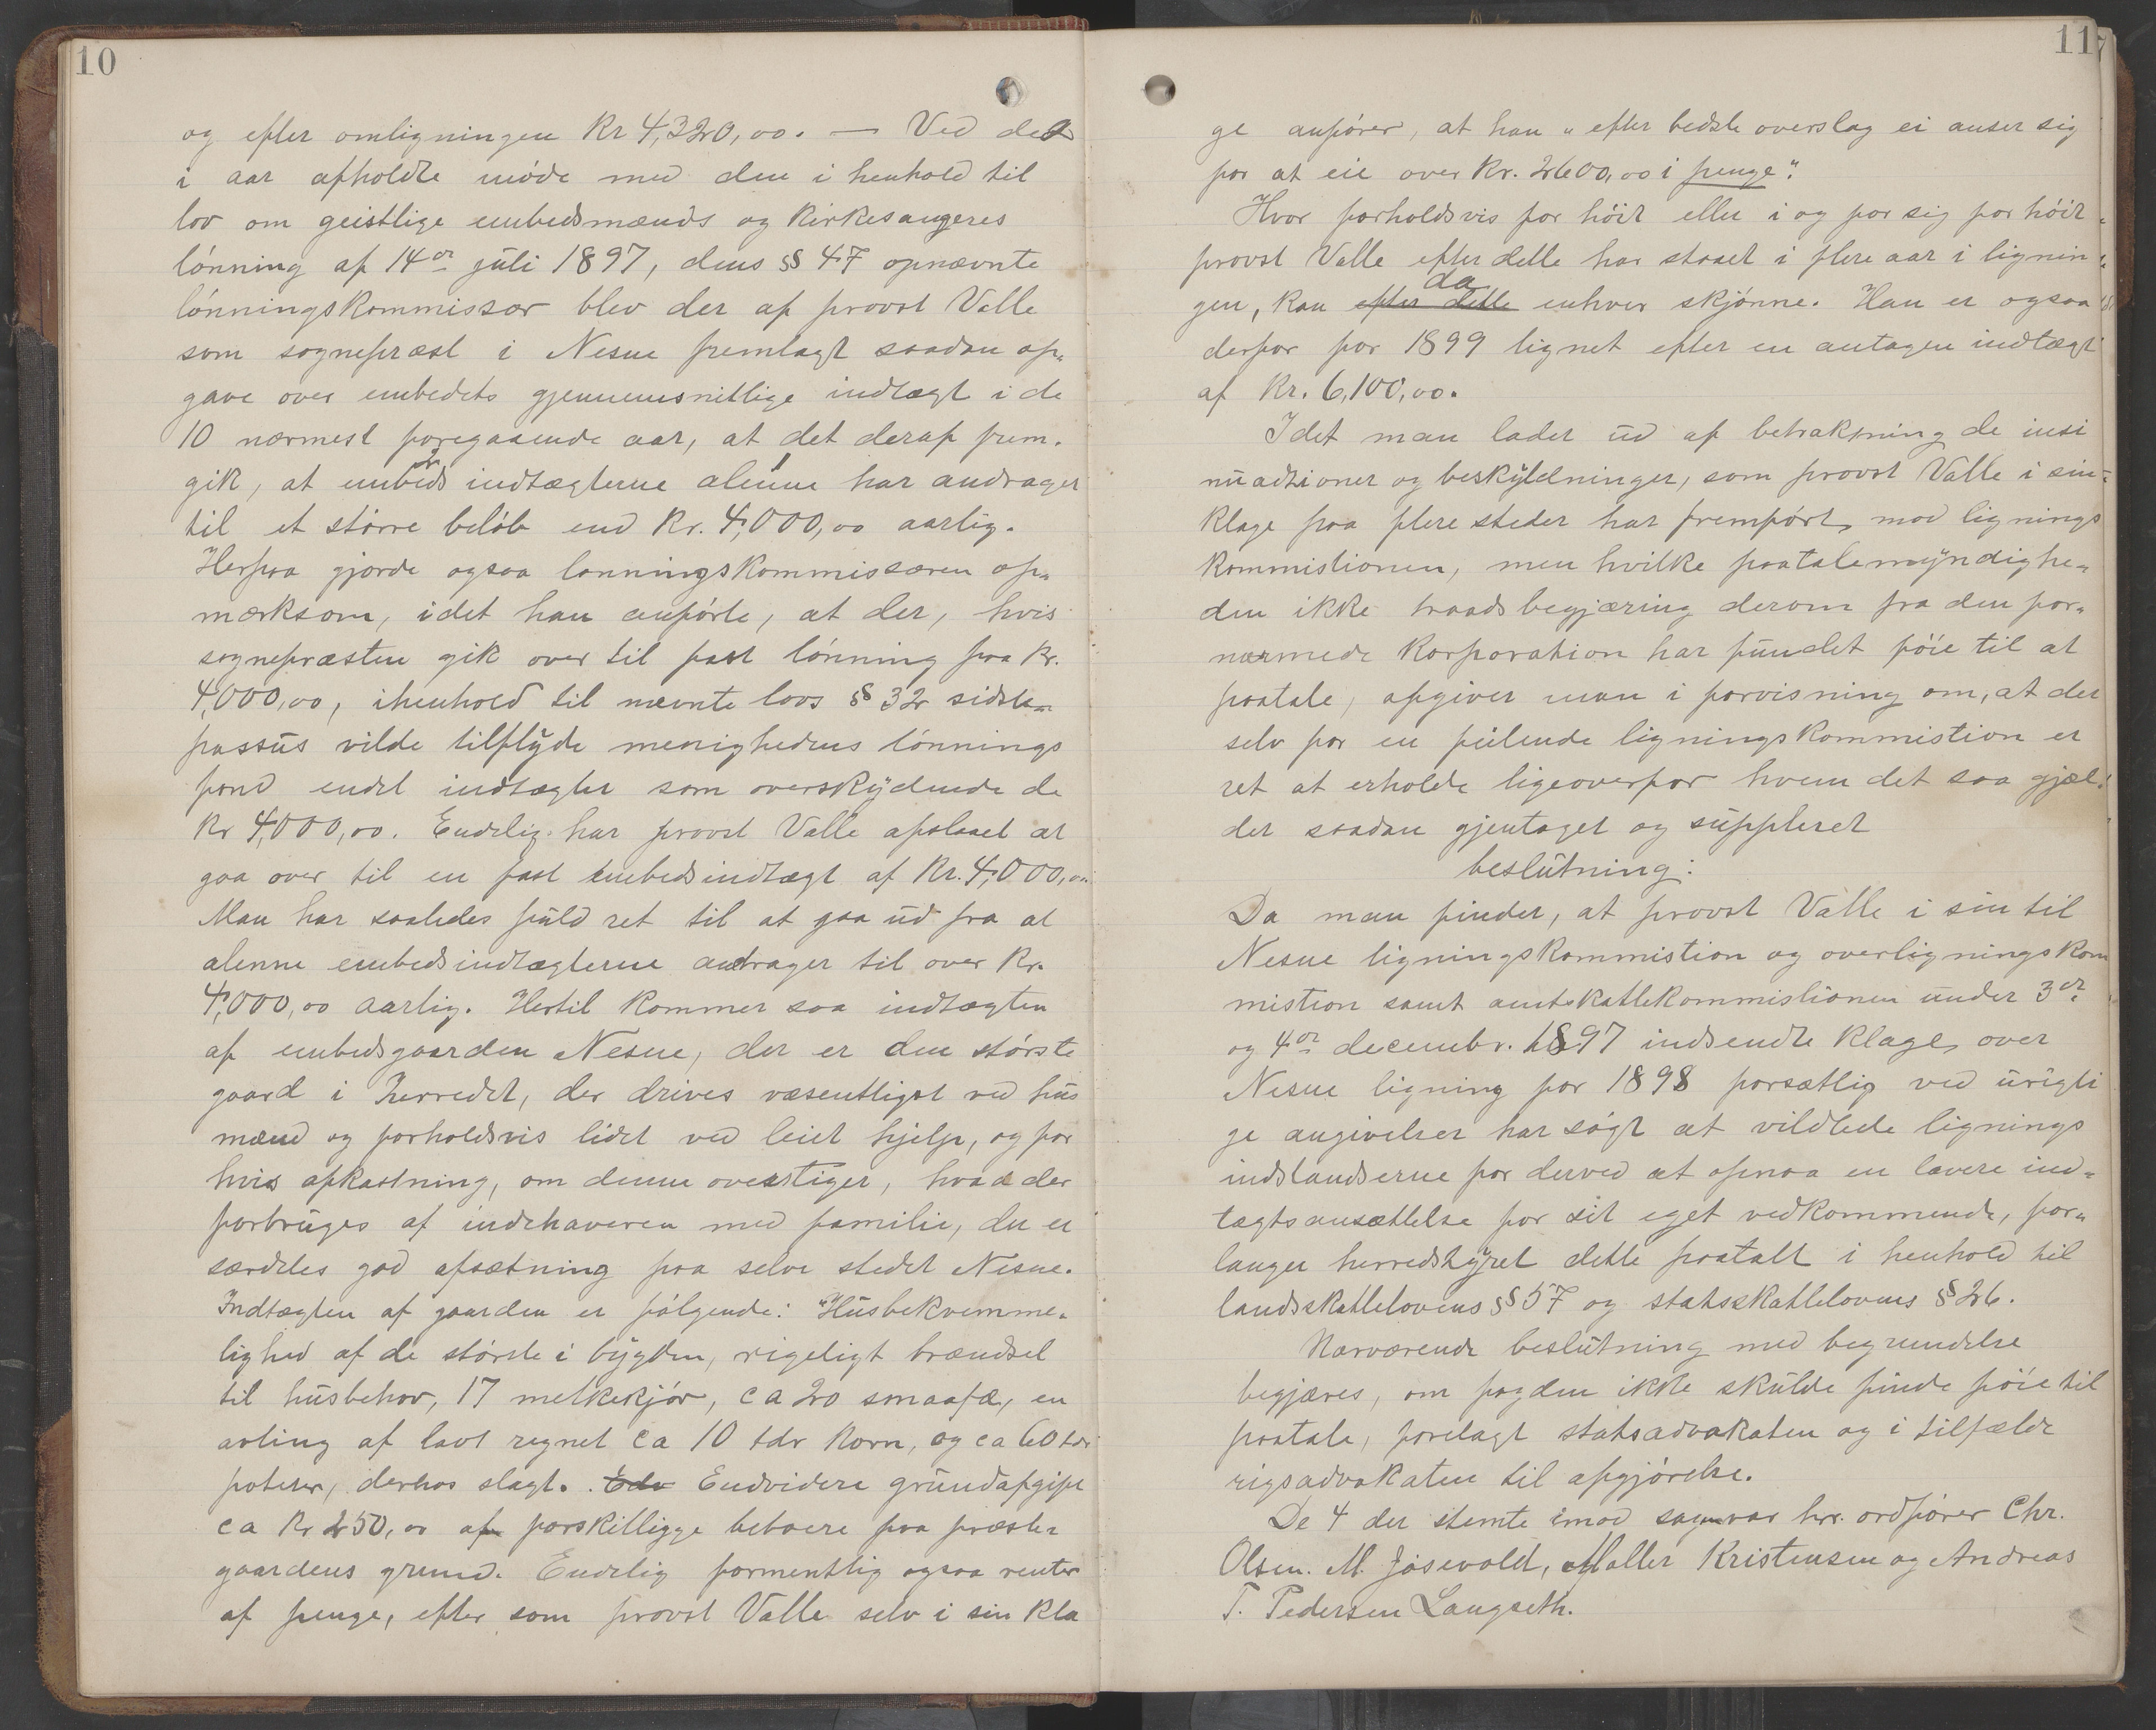 10
og efter omligningen Kr 4,320,00. — Ved det
i aar afholdte møde med den i henhold til
lov om geistlige embedsmænds og kirkesangeres
lønning af 14de juli 1897, dens §§ 47 opnævnte
lønningskommissær blev der af provst Valle
som sogneprest i Nesne fremlagt saadan op-
gave over embedets gjennemsnitlige indtægt i de
10 nærmest foregaaende aar, at det deraf frem-
gik, at embedsindtægterne alene har andraget
til et større beløb end Kr. 4,000,00 aarlig.
Herpaa gjorde ogsaa lønningskommissæren op-
mærksom, idet han anførte, at der, hvis
sognepræsten gik over til fast lønning paa Kr.
4,000,00, ihenhold til nævnte lovs § 32 sidste
passus vilde tilflyde menighedens lønnings
fond endel indtægter som overskydende de
Kr 4,000,00. Endelig har provst Valle afslaaet at
gaa over til en fast embedsindtægt af Kr. 4,000,00
Man har saaledes fuld ret til at gaa ud fra at
alenne embedsindtægterne andrager til over Kr.
4,000,00 aarlig. Hertil kommer saa indtægten
af embedsgaarden Nesne, der er den største
gaard i herredet, der drives væsentligst ved hus
mænd og forholdsvis lidet ved leiet hjelp, og for
hvis afkastning, om denne overstiger, hvad der
forbruges af indehaveren med familie, der er
særdeles god afsætning paa selve stedet Nesne.
Indtægten af gaarden er følgende: "Husbekvemme-
lighed af de største i bygden, rigeligt brændsel
til husbehov, 17 melkekjør, ca 20 smaafæ, en
avling af lavt regnet ca 10 tdr korn, og ca 60 tdr
poteter, derhos slagt. Edv Endvidere grundafgift
ca Kr 250,00 af forskjelligge beboere paa præste
gaardens grund. Endelig formentlig ogsaa renter
af penge, efter som provst Valle selv i sin kla
11
ge anfører, at han "efter bedste overslag ei anser sig
for at eie over Kr. 2600,00 i penge".
Hvor forholdsvis for høit eller i og for sig for høit
provst Valle efter dette har staaet i flere aar i lignin
gen, kan efter dette da enhver skjønne. Han er ogsaa
derfor for 1899 lignet efter en antagen indtægt
af Kr. 6,100,00.
Idet man lader ud af betraktning de insi
nuadtioner og beskyldninger, som provst Valle i sin
klage paa flere steder har fremført mod lignings
kommistionen, men hvilke paatalemyndighe-
den ikke traads begjæring derom fra den for-
nærmede korporation har fundet føie til at
paatale, afgiver man i forvisning om, at der
selv for en feilende ligningskommistion er
ret at erholde ligeoverfor hvem det saa gjæl-
der saadan gjentaget og suppleret
beslutning:
Da man finder, at provst Valle i sin til
Nesne ligningskommistion og overligningskom
mistion samt amtskattekommistionen under 3de
og 4de decembr. 1897 indsendte klage over
Nesne ligning for 1898 forsætlig ved urigti
ge angivelser har søgt at vildlede lignings
indstandserne for derved at opnaa en lavere ind-
tægtsansættelse for sit eget vedkommende, for-
langer herredstyret dette paatalt i henhold til
landsskattelovens §§ 57 og statsskattelovens § 26.
Nærværende beslutning med begrundelse
begjæres, om fogden ikke skulde finde føie til
paatale, forelagt statsadvokaten og i tilfælde
rigsadvokaten til afgjørelse.
De 4 der stemte imod sagen var hrr. ordfører Chr.
Olsen. M. Jøsevold, Møller Kristensen og Andreas
T. Pedersen Langseth.